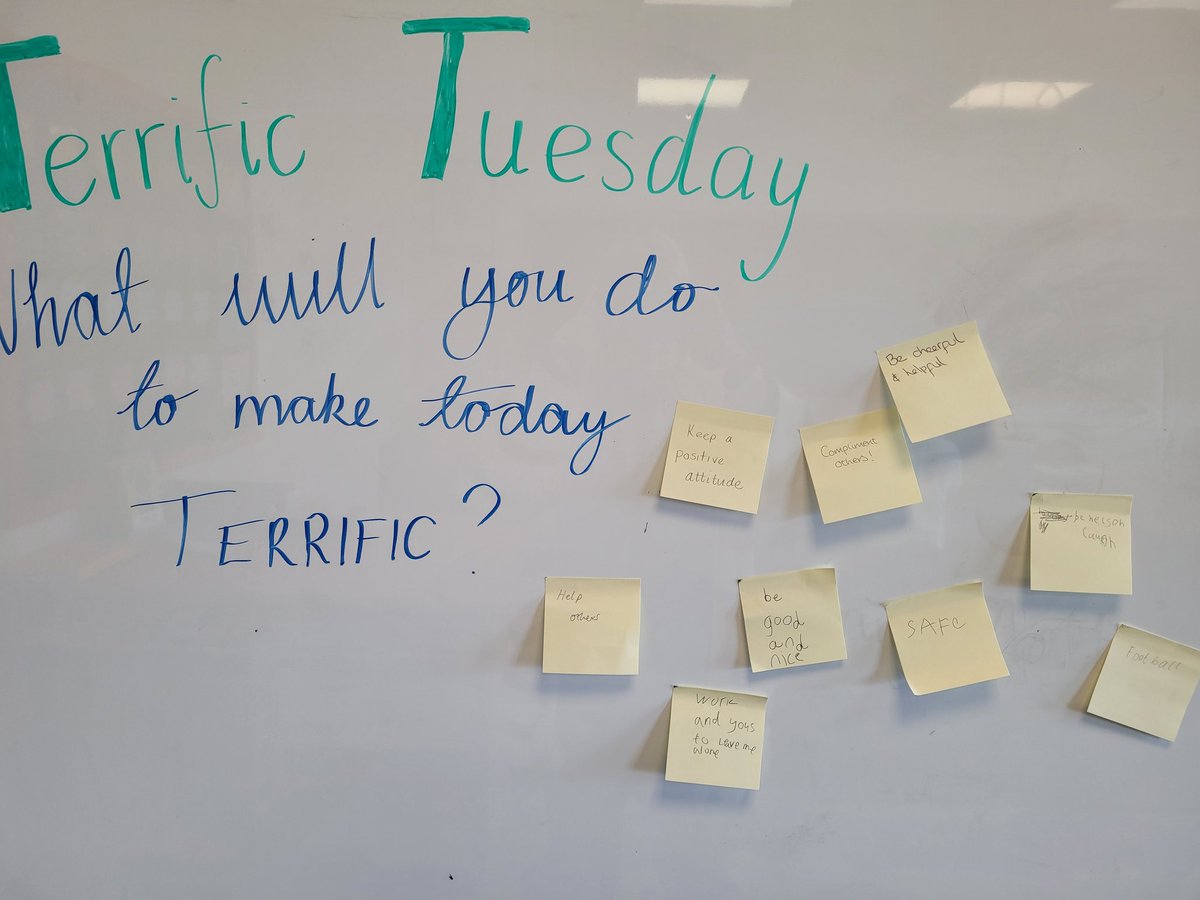 Terrific Tuesday
What will you do
to make today
TERRIFIC?
Be cheerful
& helpful
Keep a
positive
attitude
Compliment
others!
Laugh
Help
others
be
good
and
nice
SAFC
Football
Work
and yous
to leave me
alone